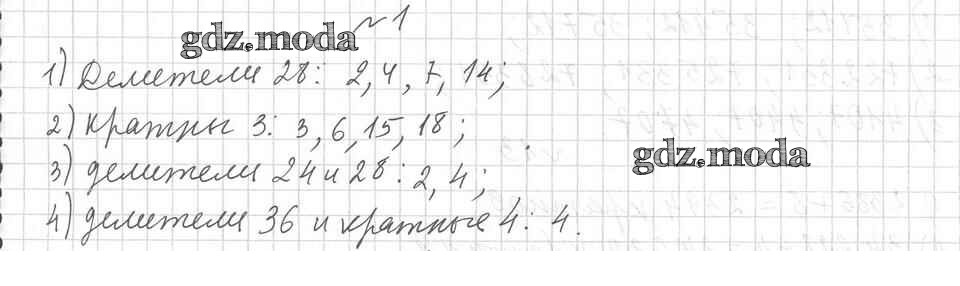 № 1
gdz.moda
1) Делители 28: 2, 4, 7, 14;
2) кратны 3: 3, 6, 15, 18;
gdz.moda
3) делители 24 и 28: 2, 4;
4) делители 36 и кратные 4: 4.